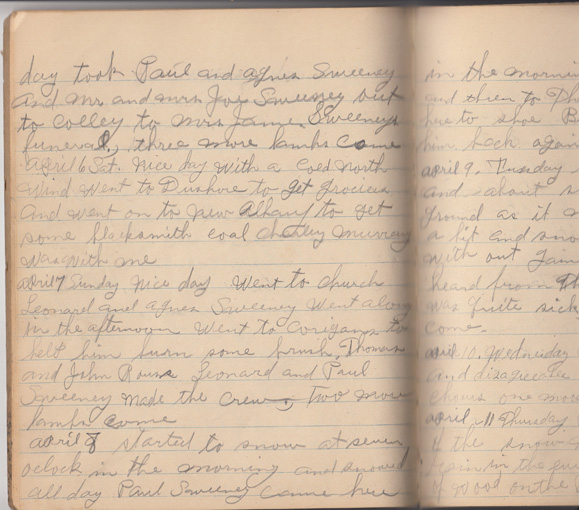 day took Paul and agnes Sweeney
and Mr and Mrs Joe Sweeney out
to Colley to Mrs James Sweeneys
funeral, three more lambs Come
april 6 Sat. Nice day with a Cold North
Wind Went to Dushore to get groceries
and went on to New Albany to get
some blacksmith coal charley Murray
was with me
april 7 Sunday Nice day Went to church
Leonard and agnes Sweeney Went along
in the afternoon Went to Corigans to
help him burn some brush Thomas
and John Rouse Leonard and Paul
Sweeney made the Crew, Two more
lambs come
april 8 started to snow at seven
oclock in the morning and snowed
all day Paul Sweeney came here
in the
and then to
here to shoe
him back again
april 9. Tuesday
and about
ground as it
a bit and
with out
heard from
was quite sick
come.
april 10, Wednesday
and
chores one
april 11 Thursday
the snow
in the
of wood on the